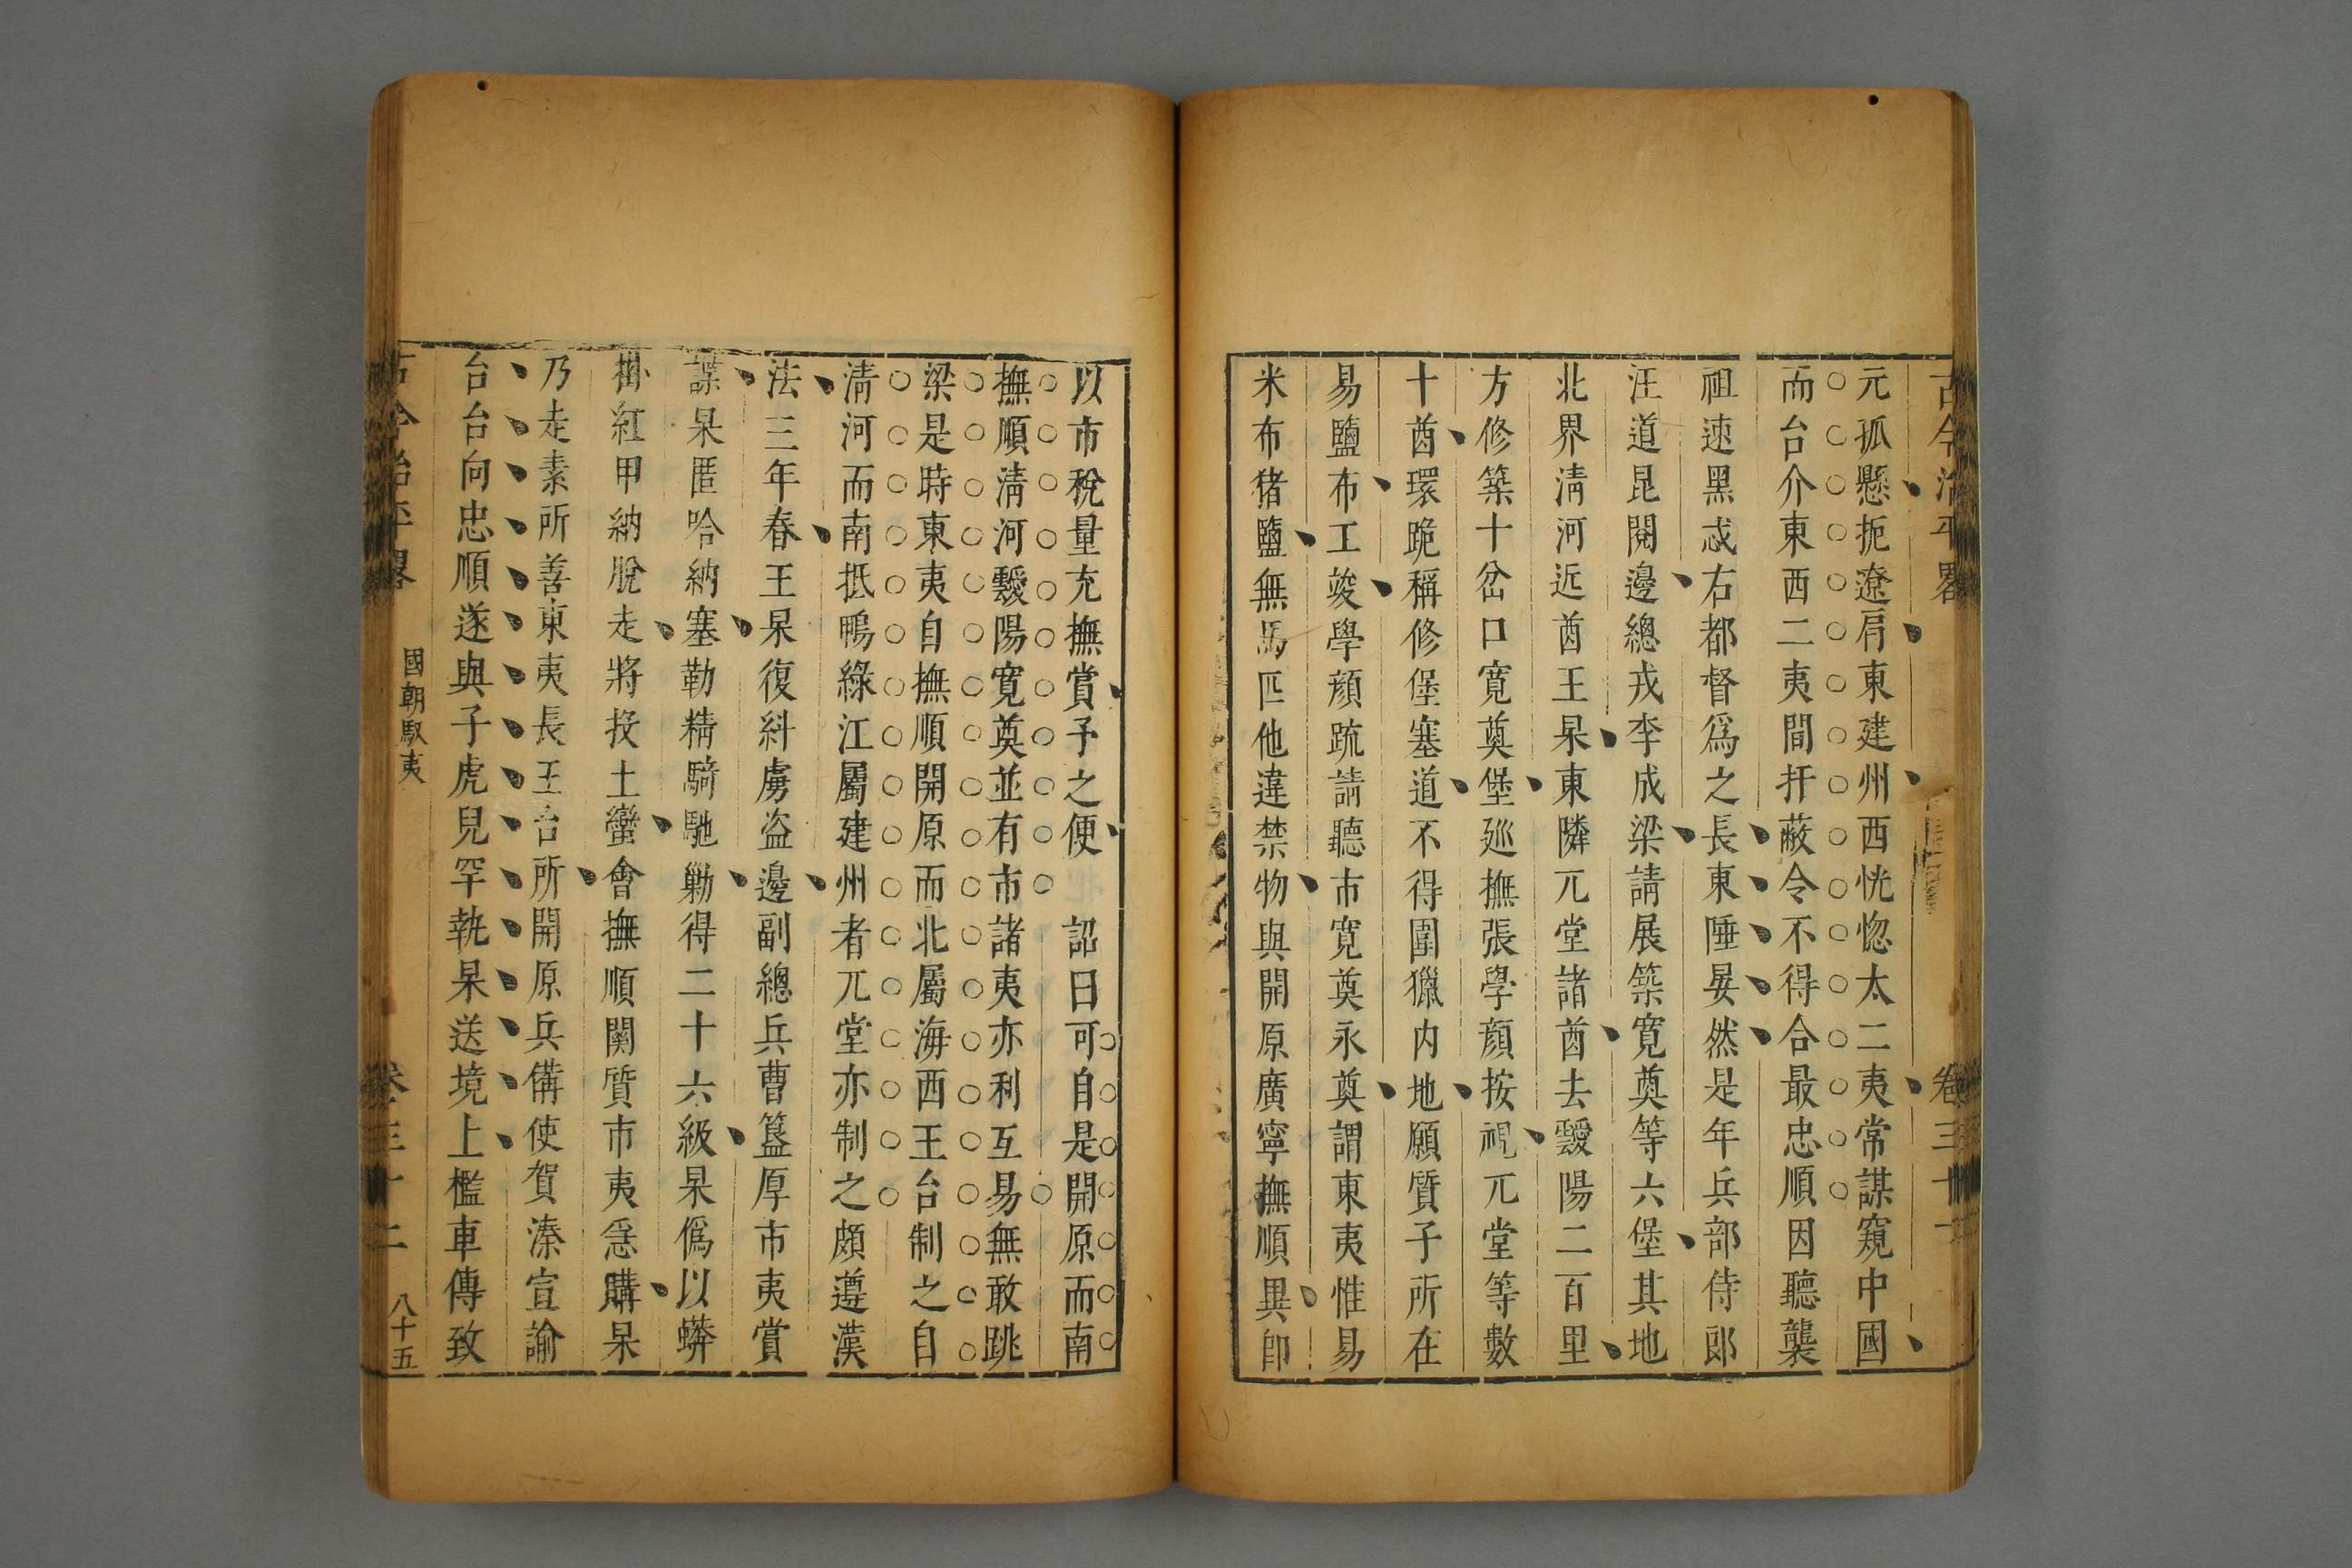 古今治平畧 卷三十二
元孤懸扼遼肩東建州西恍惚太二夷常謀窺中國
而台介東西二夷間扞蔽令不得合最忠順因聽襲
祖速黑忒右都督爲之長東陲晏然是年兵部侍郎
汪道昆閱邊總戎李成梁請展築寬奠等六堡其地
北界淸河近酋王杲東隣兀堂諸酋去靉陽二百里
方修築十岔口寬奠堡廵撫張學顏按視兀堂等數
十酋環跪稱修堡塞道不得圍獵内地願質子所在
易鹽布工竣學顏疏請聽市寬奠永奠謂東夷惟易
米布猪鹽無馬匹他違禁物與開原廣寧撫順異卽
以市稅量充撫賞予之便 詔曰可自是開原而南
撫順淸河靉陽寬奠並有市諸夷亦利互易無敢跳
梁是時東夷自撫順開原而北屬海西王台制之自
淸河而南抵鴨綠江屬建州者兀堂亦制之頗遵漢
法三年春王杲復糾虜盜邊副總兵曹簠厚市夷賞
諜杲匿哈納塞勒精騎馳勦得二十六級杲僞以蟒
掛紅甲納脫走將投土蠻會撫順關質市夷急購杲
乃走素所善東夷長王台所開原兵備使賀溱宣諭
台台向忠順遂與子虎兒罕執杲送境上檻車傳致
古今治平畧 國朝馭夷 卷三十二 八十五